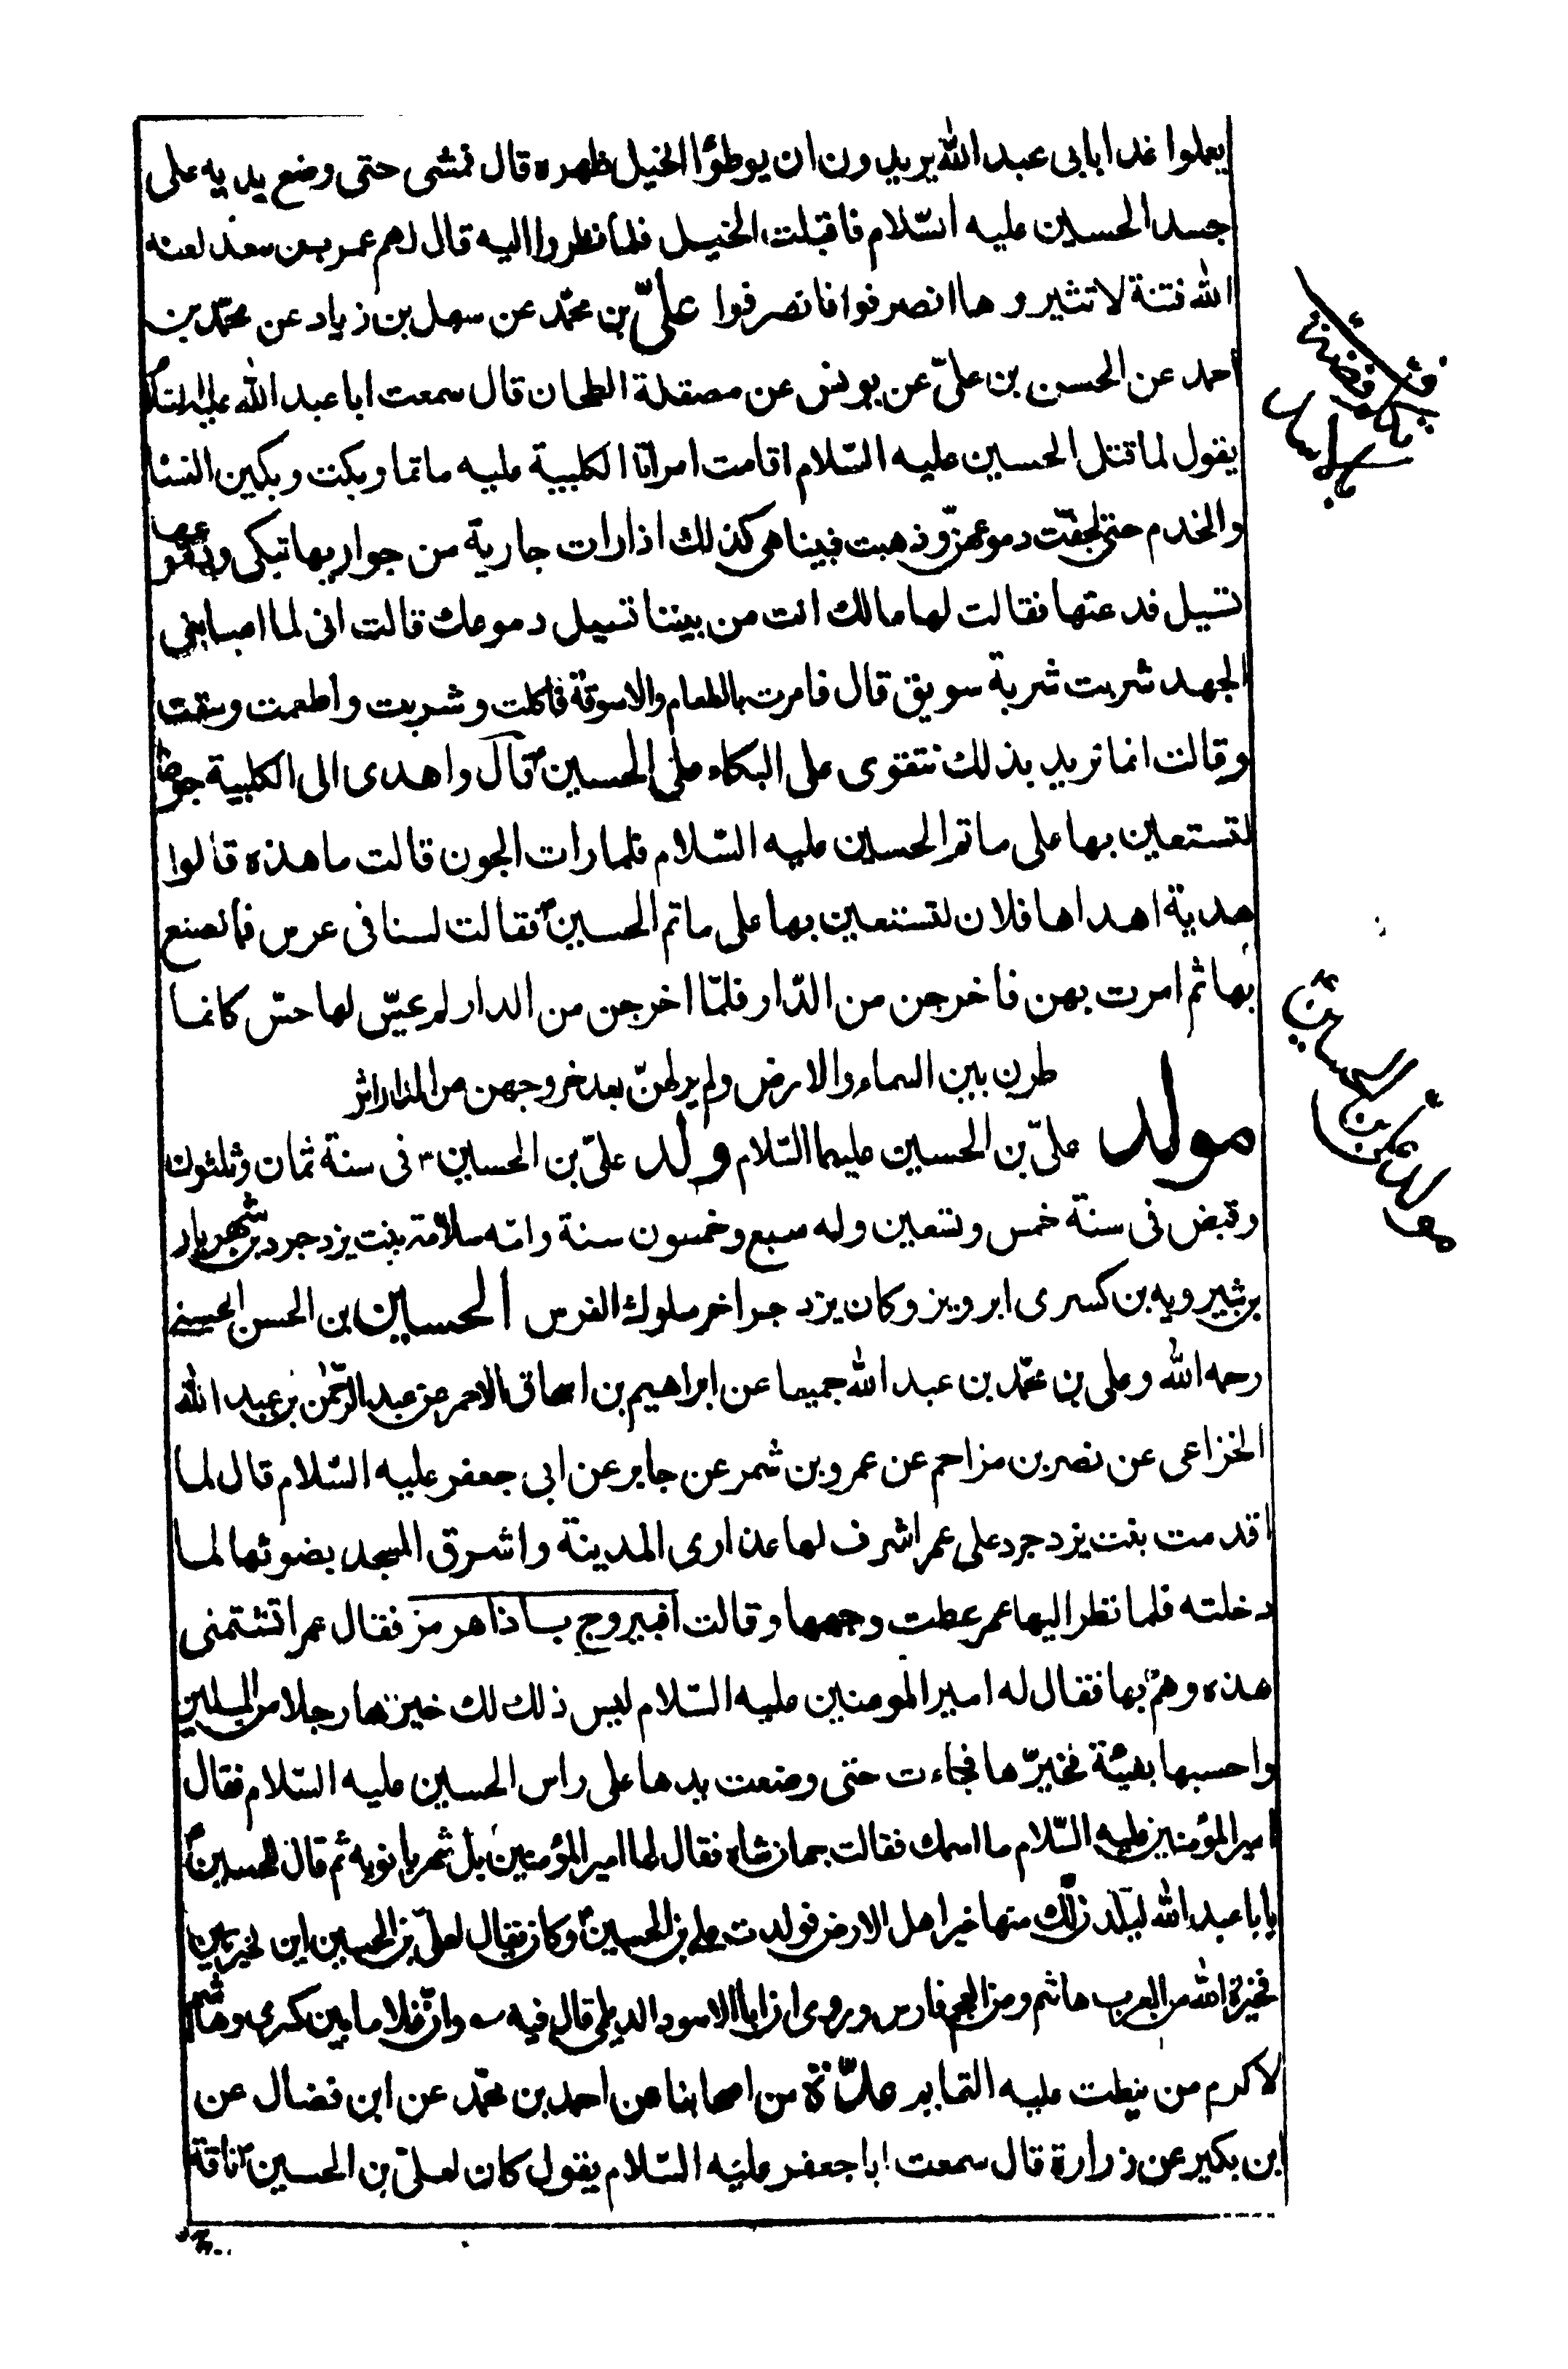 يعملوا غدا بابى عبد الله يريدون ان يوطؤا الخيل ظهره قال فمشى حتى وضع يديه على
جسد الحسين عليه السّلام فاقبلت الخيل فلما نظروا اليه قال لهم عمر بن سعد لعنه
الله فتنة لا تثيروها انصرفوا فانصرفوا علىّ بن محمّد عن سهل بن زياد عن محمّد بن
احمد عن الحسن بن علىّ عن يونس عن مصقلة الطحان قال سمعت ابا عبد الله عليه السّلام
يقول لما قتل الحسين عليه السّلام اقامت امراته الكلبية عليه ماتما وبكت وبكين النساء
والخدم حتى جفّت دموعهنّ وذهبت فبينا هى كذلك اذا رات جارية من جواريها تبكى ودموعها
تسيل فدعتها فقالت لها مالك انت من بيننا تسيل دموعك قالت انى لما اصابنى
الجهد شربت شربة سويق قال فامرت بالطعام والاسوقة فاكلت وشربت واطعمت وسقت
وقالت انما نريد بذلك نتقوى على البكاء على الحسين ع قال واهدى الى الكلبية جونا
لتستعين بها على ماتم الحسين عليه السّلام فلما رات الجون قالت ما هذه قالوا
هدية اهداها فلان لتستعين بها على ماتم الحسين ع فقالت لسنا فى عرس فما نصنع
بها ثم امرت بهن فاخرجن من الدّار فلمّا اخرجن من الدار لم يحسّ لها حسّ كانما
طرن بين السماء والارض ولم ير لهنّ بعد خروجهن من الدار اثر
مولد علىّ بن الحسين عليهما السّلام ولد علىّ بن الحسين ع فى سنة ثمان وثلثون
وقبض فى سنة خمس وتسعين وله سبع وخمسون سنة وامّه سلامة بنت يزدجرد بن شهريار
بن شيرويه بن كسرى ابرويز وكان يزدجرد اخر ملوك الفرس الحسين بن الحسن الحسينى
رحمه الله وعلى بن محمّد بن عبد الله جميعا عن ابراهيم بن اسحاق الاحمر عن عبد الرّحمٰن بن عبد الله
الخزاعى عن نصر بن مزاحم عن عمرو بن شمر عن جابر عن ابى جعفر عليه السّلام قال لما
اقدمت بنت يزدجرد على عمر اشرف لها عذارى المدينة واشرق المسجد بضوئها لما
دخلته فلما نظر اليها عمر غطت وجهها وقالت افيروج بادا هرمز فقال عمر اتشتمنى
هذه وهمّ بها فقال له امير المومنين عليه السّلام ليس ذلك لك خيرها رجلا من المسلمين
واحسبها بفيئه فخيرّها فجاءت حتى وضعت يدها على راس الحسين عليه السّلام فقال
امير المؤمنين عليه السّلام ما اسمك فقالت جهان شاه فقال لها امير المؤمنين بل شهربانويه ثم قال للحسين ع
يا با عبد الله ليلدنّ لك منها خير اهل الارض فولدت على بن الحسين ع وكان يقال لعلىّ بن الحسين ابن الخيرتين
فخيرة الله من العرب هاشم ومن العجم فارس وروى ان ابا الاسود الديلمى قال فيه وانّ غلاما بين كسرى وهاشم
لاكرم من نيطت عليه التمايم عدّة من اصحابنا عن احمد بن محمّد عن ابن فضال عن
ابن بكير عن زرارة قال سمعت ابا جعفر عليه السّلام يقول كان لعلىّ بن الحسين ع ناقة
مولد على بن الحسين ع